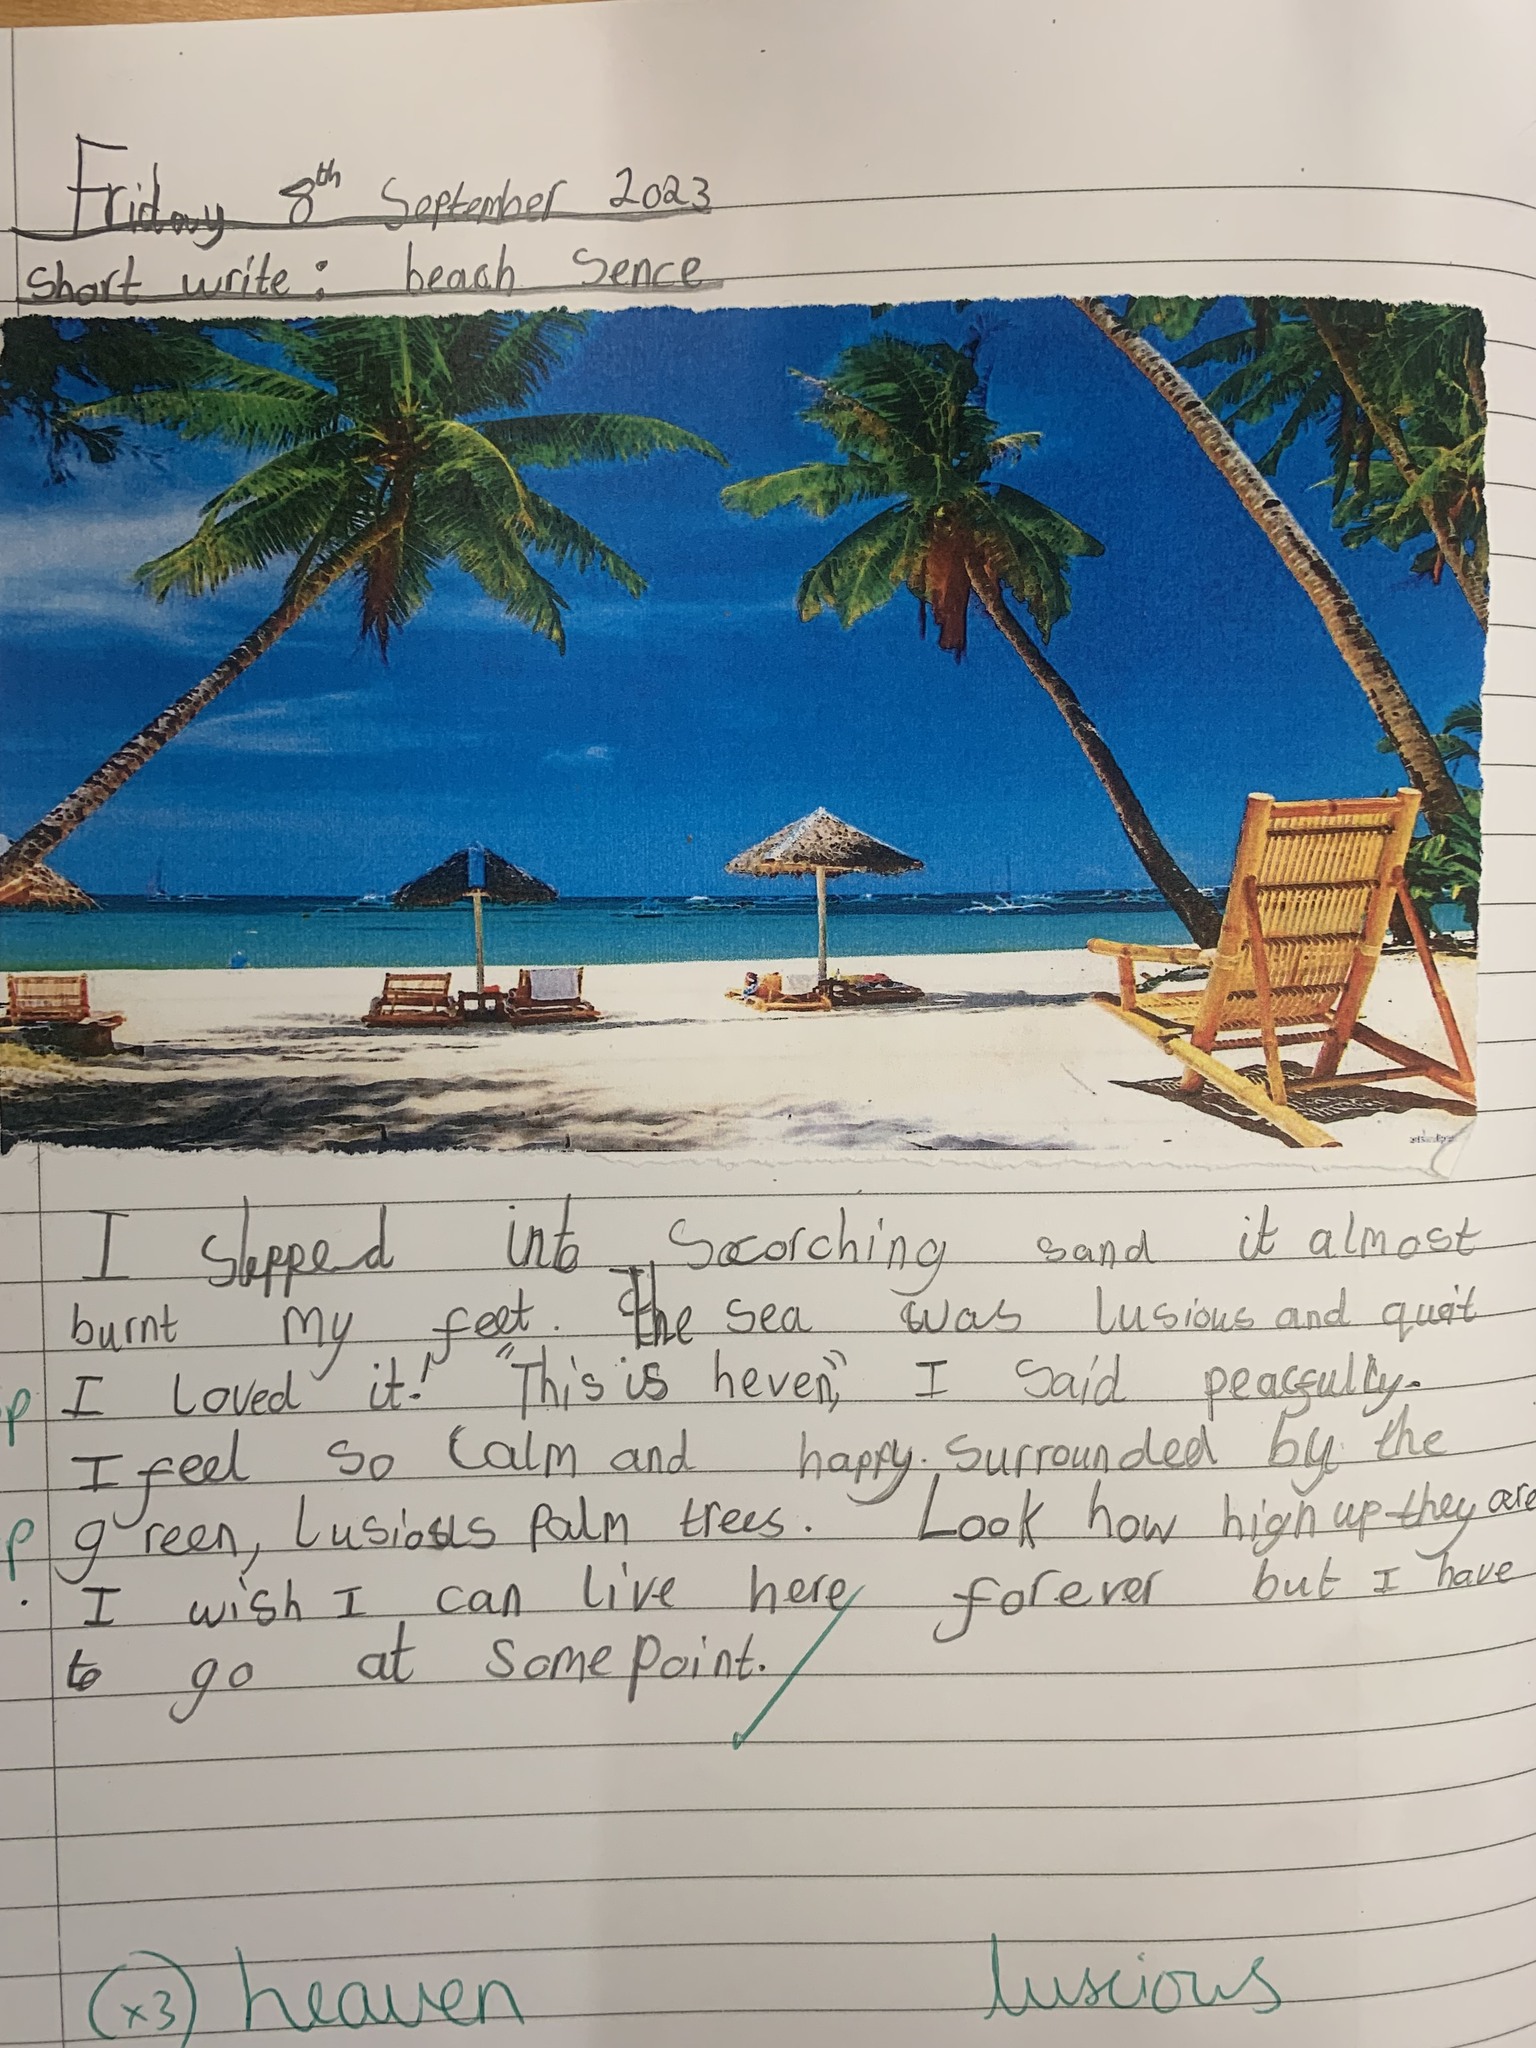 Friday 8th September 2023
Short write: beach Sence
I stepped into Scorching sand it almost
burnt my feet. The sea was lusious and quit
p I loved it! "This is heven," I said peacfully.
I feel so calm and happy. Surrounded by the
p green, Lusious palm trees. Look how high up they are
. I wish I can live here forever but I have
to go at some point.
(x3) heaven luscious